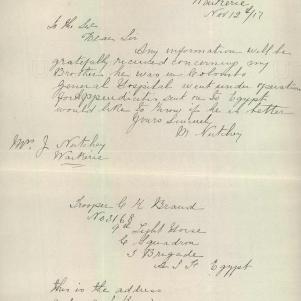 Waikerie
Nov 12th/17
To the Sec
Dear Sir
Any information will be
gratefully received concerning my
Brother he was in Colombo
General Hospital went under operation
for Appendicitis sent on to Egypt
would like to know if he is better
Yours Sincerely
M Nutchey
Mrs J Nutchey
Waikerie
Trooper C H Brand
No 3168
9th Light Horse
C Squadron
3 Brigade
A I F Egypt
this is the address